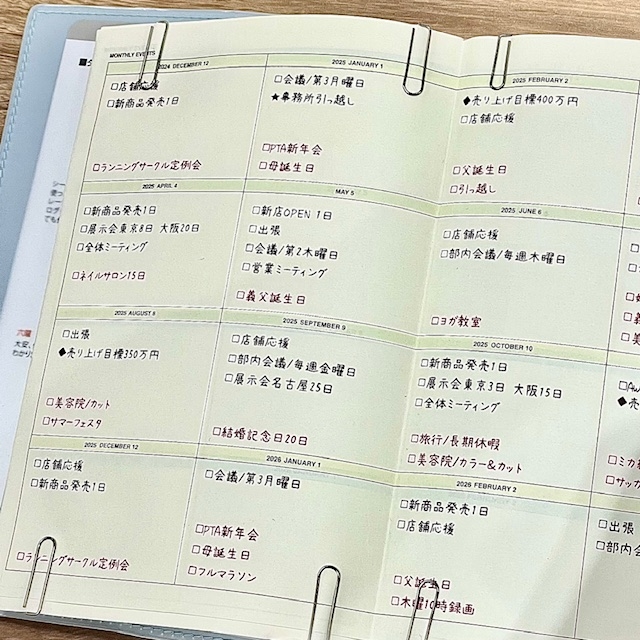 MONTHLY EVENTS
2024 DECEMBER 12
□店舗応援
□新商品発売1日
□ランニングサークル定例会
2025 JANUARY 1
□会議/第3月曜日
★事務所引っ越し
□PTA新年会
□母誕生日
2025 FEBRUARY 2
◆売り上げ目標400万円
□店舗応援
□父誕生日
□引っ越し
2025 APRIL 4
□新商品発売1日
□展示会東京8日 大阪20日
□全体ミーティング
□ネイルサロン15日
MAY 5
□新店OPEN 1日
□出張
□会議/第2木曜日
□営業ミーティング
□義父誕生日
2025 JUNE 6
□店舗応援
□部内会議/毎週木曜日
□ヨガ教室
2025 AUGUST 8
□出張
◆売り上げ目標350万円
□美容院/カット
□サマーフェスタ
2025 SEPTEMBER 9
□店舗応援
□部内会議/毎週金曜日
□展示会名古屋25日
□結婚記念日20日
2025 OCTOBER 10
□新商品発売1日
□展示会東京3日 大阪15日
□全体ミーティング
□旅行/長期休暇
□美容院/カラー&カット
2025 DECEMBER 12
□店舗応援
□新商品発売1日
□ランニングサークル定例会
2026 JANUARY 1
□会議/第3月曜日
□PTA新年会
□母誕生日
□フルマラソン
2026 FEBRUARY 2
□新商品発売1日
□店舗応援
□父誕生日
□木曜10時録画
□出張
六曜
大安、
わかり